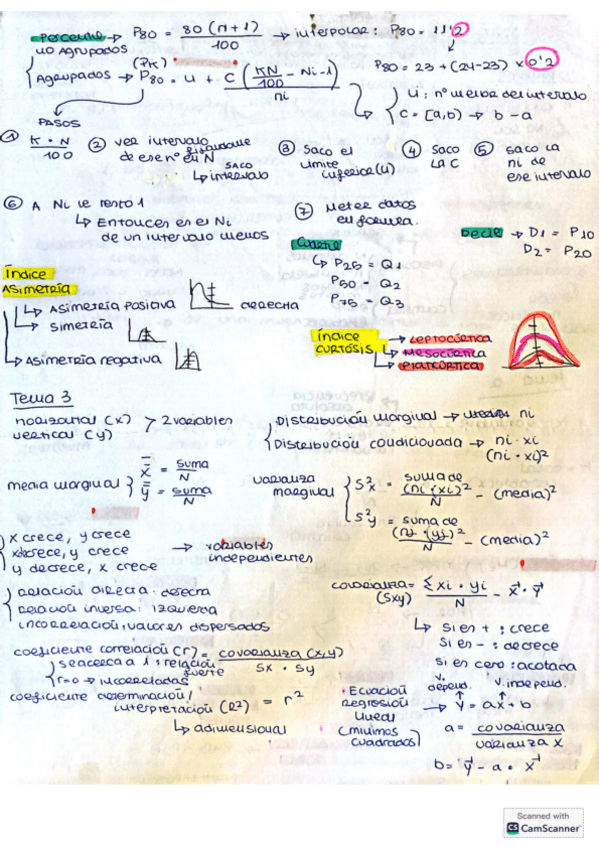 Percentil → P80 = 80 (N+1) / 100 → interpolar: P80 = 11'2
no Agrupados
P80 = 23 + (24-23) x 0'2
(PK)
Agrupados → P80 = Li + C ( KN/100 - Ni-1 / ni )
Li: nº menor del intervalo
C = [a,b) → b - a
PASOS
① K · N / 100
② ver intervalo de ese nº en N
↳ saco intervalo
③ Saco el límite inferior (Li)
④ Saco la C
⑤ saco la ni de ese intervalo
⑥ A Ni le resto 1
↳ Entonces es el Ni de un intervalo menos
⑦ Meter datos en fórmula.
Cuartil
↳ P25 = Q1
P50 = Q2
P75 = Q3
Decil → D1 = P10
D2 = P20
Índice
ASIMETRÍA
↳ Asimetría Positiva
derecha
↳ Simetría
↳ Asimetría negativa
índice
CURTOSIS
→ Leptocúrtica
↳ Mesocúrtica
Platicúrtica
Tema 3
horizontal (x)
vertical (y)
> 2 variables
Distribución marginal → ni
Distribución condicionada → ni · xi
(ni · xi)²
media marginal
x̄ = suma / N
ȳ = suma / N
varianza marginal
S²x = suma de (ni · xi)² / N - (media)²
S²y = suma de (nj · yj)² / N - (media)²
x crece, y crece
x decrece, y crece
y decrece, x crece
→ variables independientes
relación directa: derecha
relación inversa: izquierda
incorrelación, valores dispersados
covarianza = Σ xi · yi / N - x̄ · ȳ
(Sxy)
↳ Si es + : crece
Si es - : decrece
Si es cero: acotada
coeficiente correlación (r) = covarianza (x,y) / Sx · Sy
se acerca a 1: relación fuerte
r=0 → incorreladas
coeficiente determinación / interpretación (R2) = r²
↳ adimensional
Ecuación regresión lineal
(mínimos cuadrados)
v. depend.
v. independ.
→ y = ax + b
a = covarianza / varianza x
b = ȳ - a · x̄
Scanned with
CS CamScanner